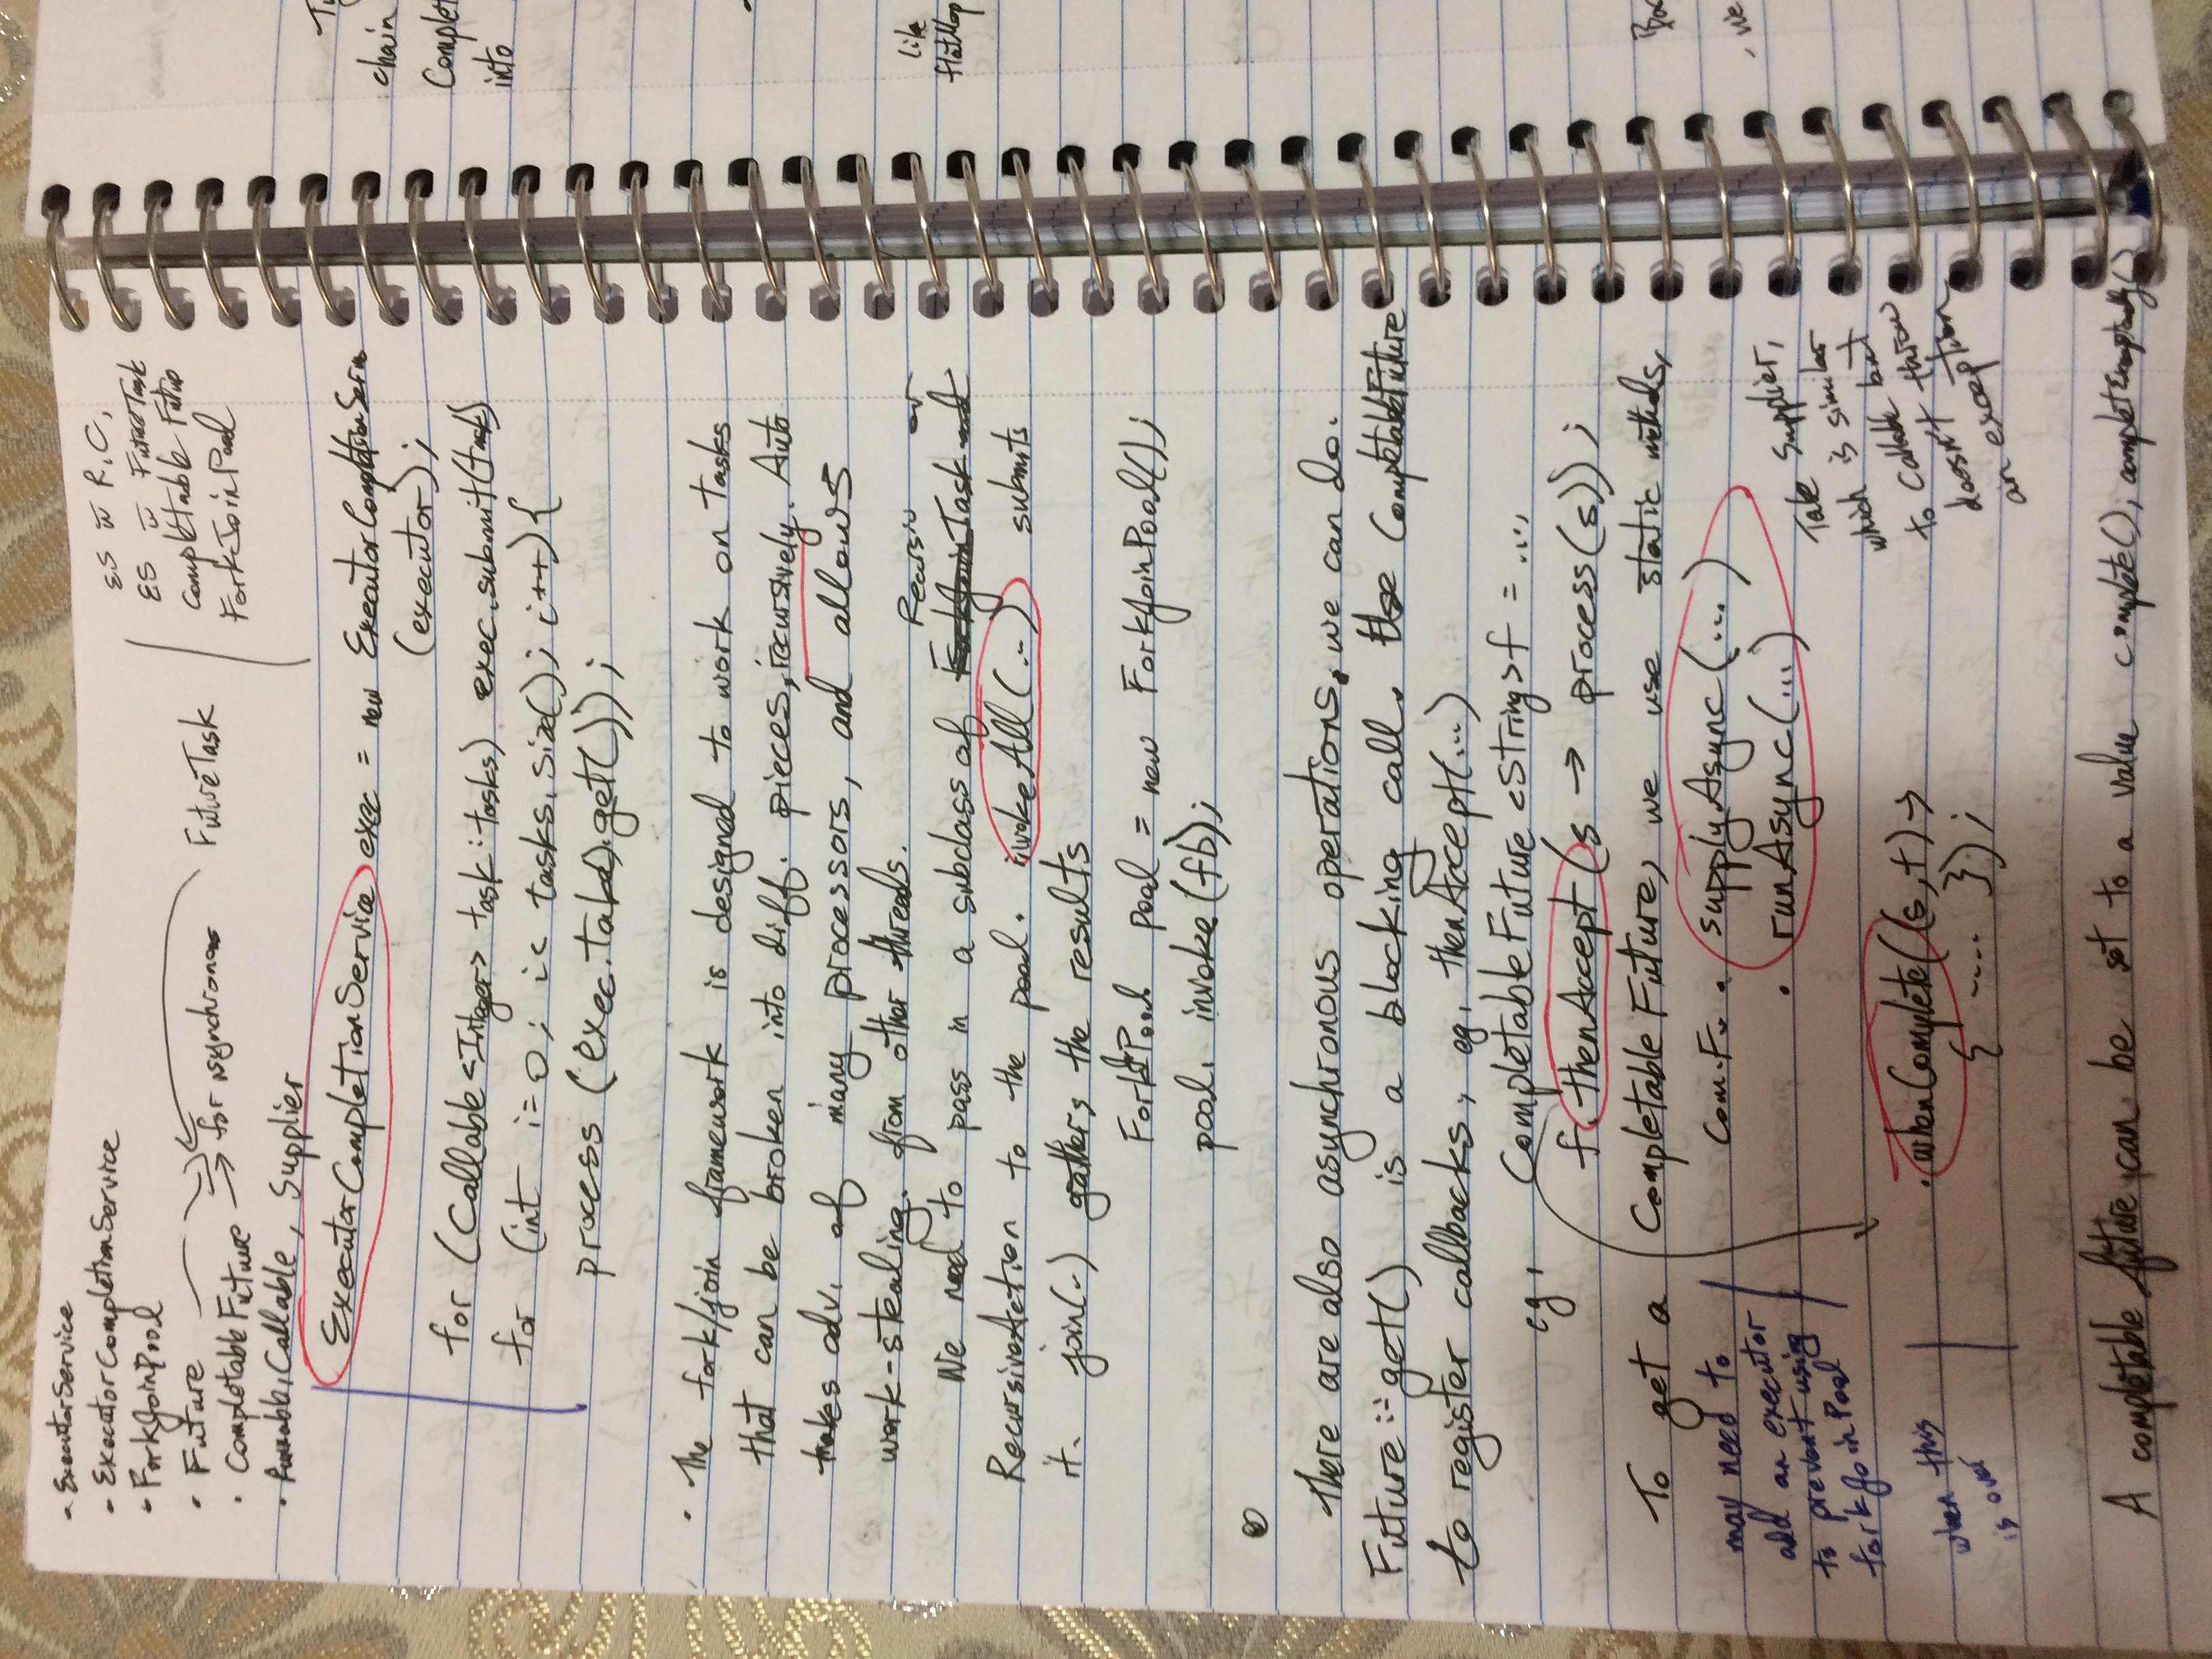 - ExecutorService
- ExecutorCompletionService
- ForkJoinPool
· Future
· CompletableFuture → for asynchronous
FutureTask
· Runnable, Callable, Supplier
ES w R, C,
ES w FutureTask
Completable Future
ForkJoinPool
ExecutorCompletionService exec = new ExecutorCompletionServi
(executor);
for (Callable <Integer> task : tasks) exec.submit(task)
for (int i=0; i< tasks.size(); i++){
process (exec.take().get());
· The fork/join framework is designed to work on tasks
that can be broken into diff. pieces, recursively. Auto
takes adv. of many processors, and allows
work-stealing. from other threads.
Recursiv or
We need to pass in a subclass of ForkJoinTask and
RecursiveAction to the pool. invokeAll(..) submits
it. join(.) gathers the results
ForkJPool pool = new ForkJoinPool();
pool. invoke (fb);
There are also asynchronous operations. we can do.
Future::get() is a blocking call. Use CompletableFuture
to register callbacks, eg, thenAccept(...)
eg, CompletableFuture <String> f = ...,
f.thenAccept(s → process(s));
To get a CompletableFuture, we use static methods,
Com.F. . supplyAsync(...)
. runAsync(...)
may need to
add an executor
to prevent using
forkJoinPool
Take Supplier,
which is similar
to Callable but
doesn't throw
an exception
.whenComplete((s,t) →
{ .... });
when this
is over
A completable future can be set to a value complete(), completExceptionally()
Ty
chain
Complet
into
like
flatMap
- we